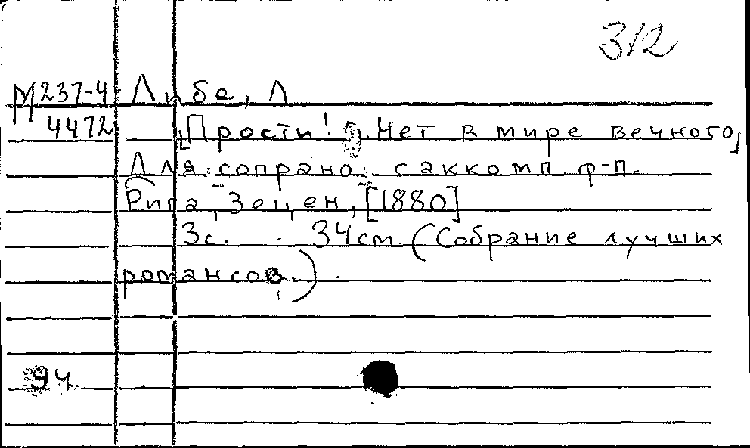 312
М 237-4 Либе, Л
4472 [Прости! Нет в мире вечного]
Для сопрано с аккомп. ф-п.
Рига, Зецен, [1880]
3с. 34см (Собрание лучших
романсов.)
94